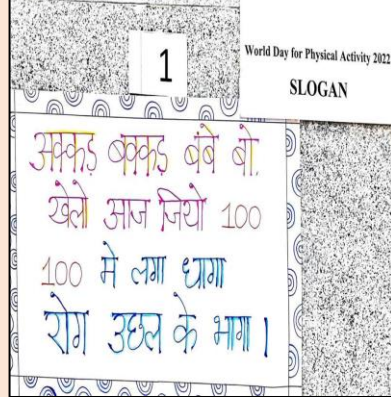 1
World Day for Physical Activity 2022
SLOGAN
अक्कड़ बक्कड़ बंबे बो.
खेलो आज जियो 100
100 में लगा धागा
रोग उछल के भागा।